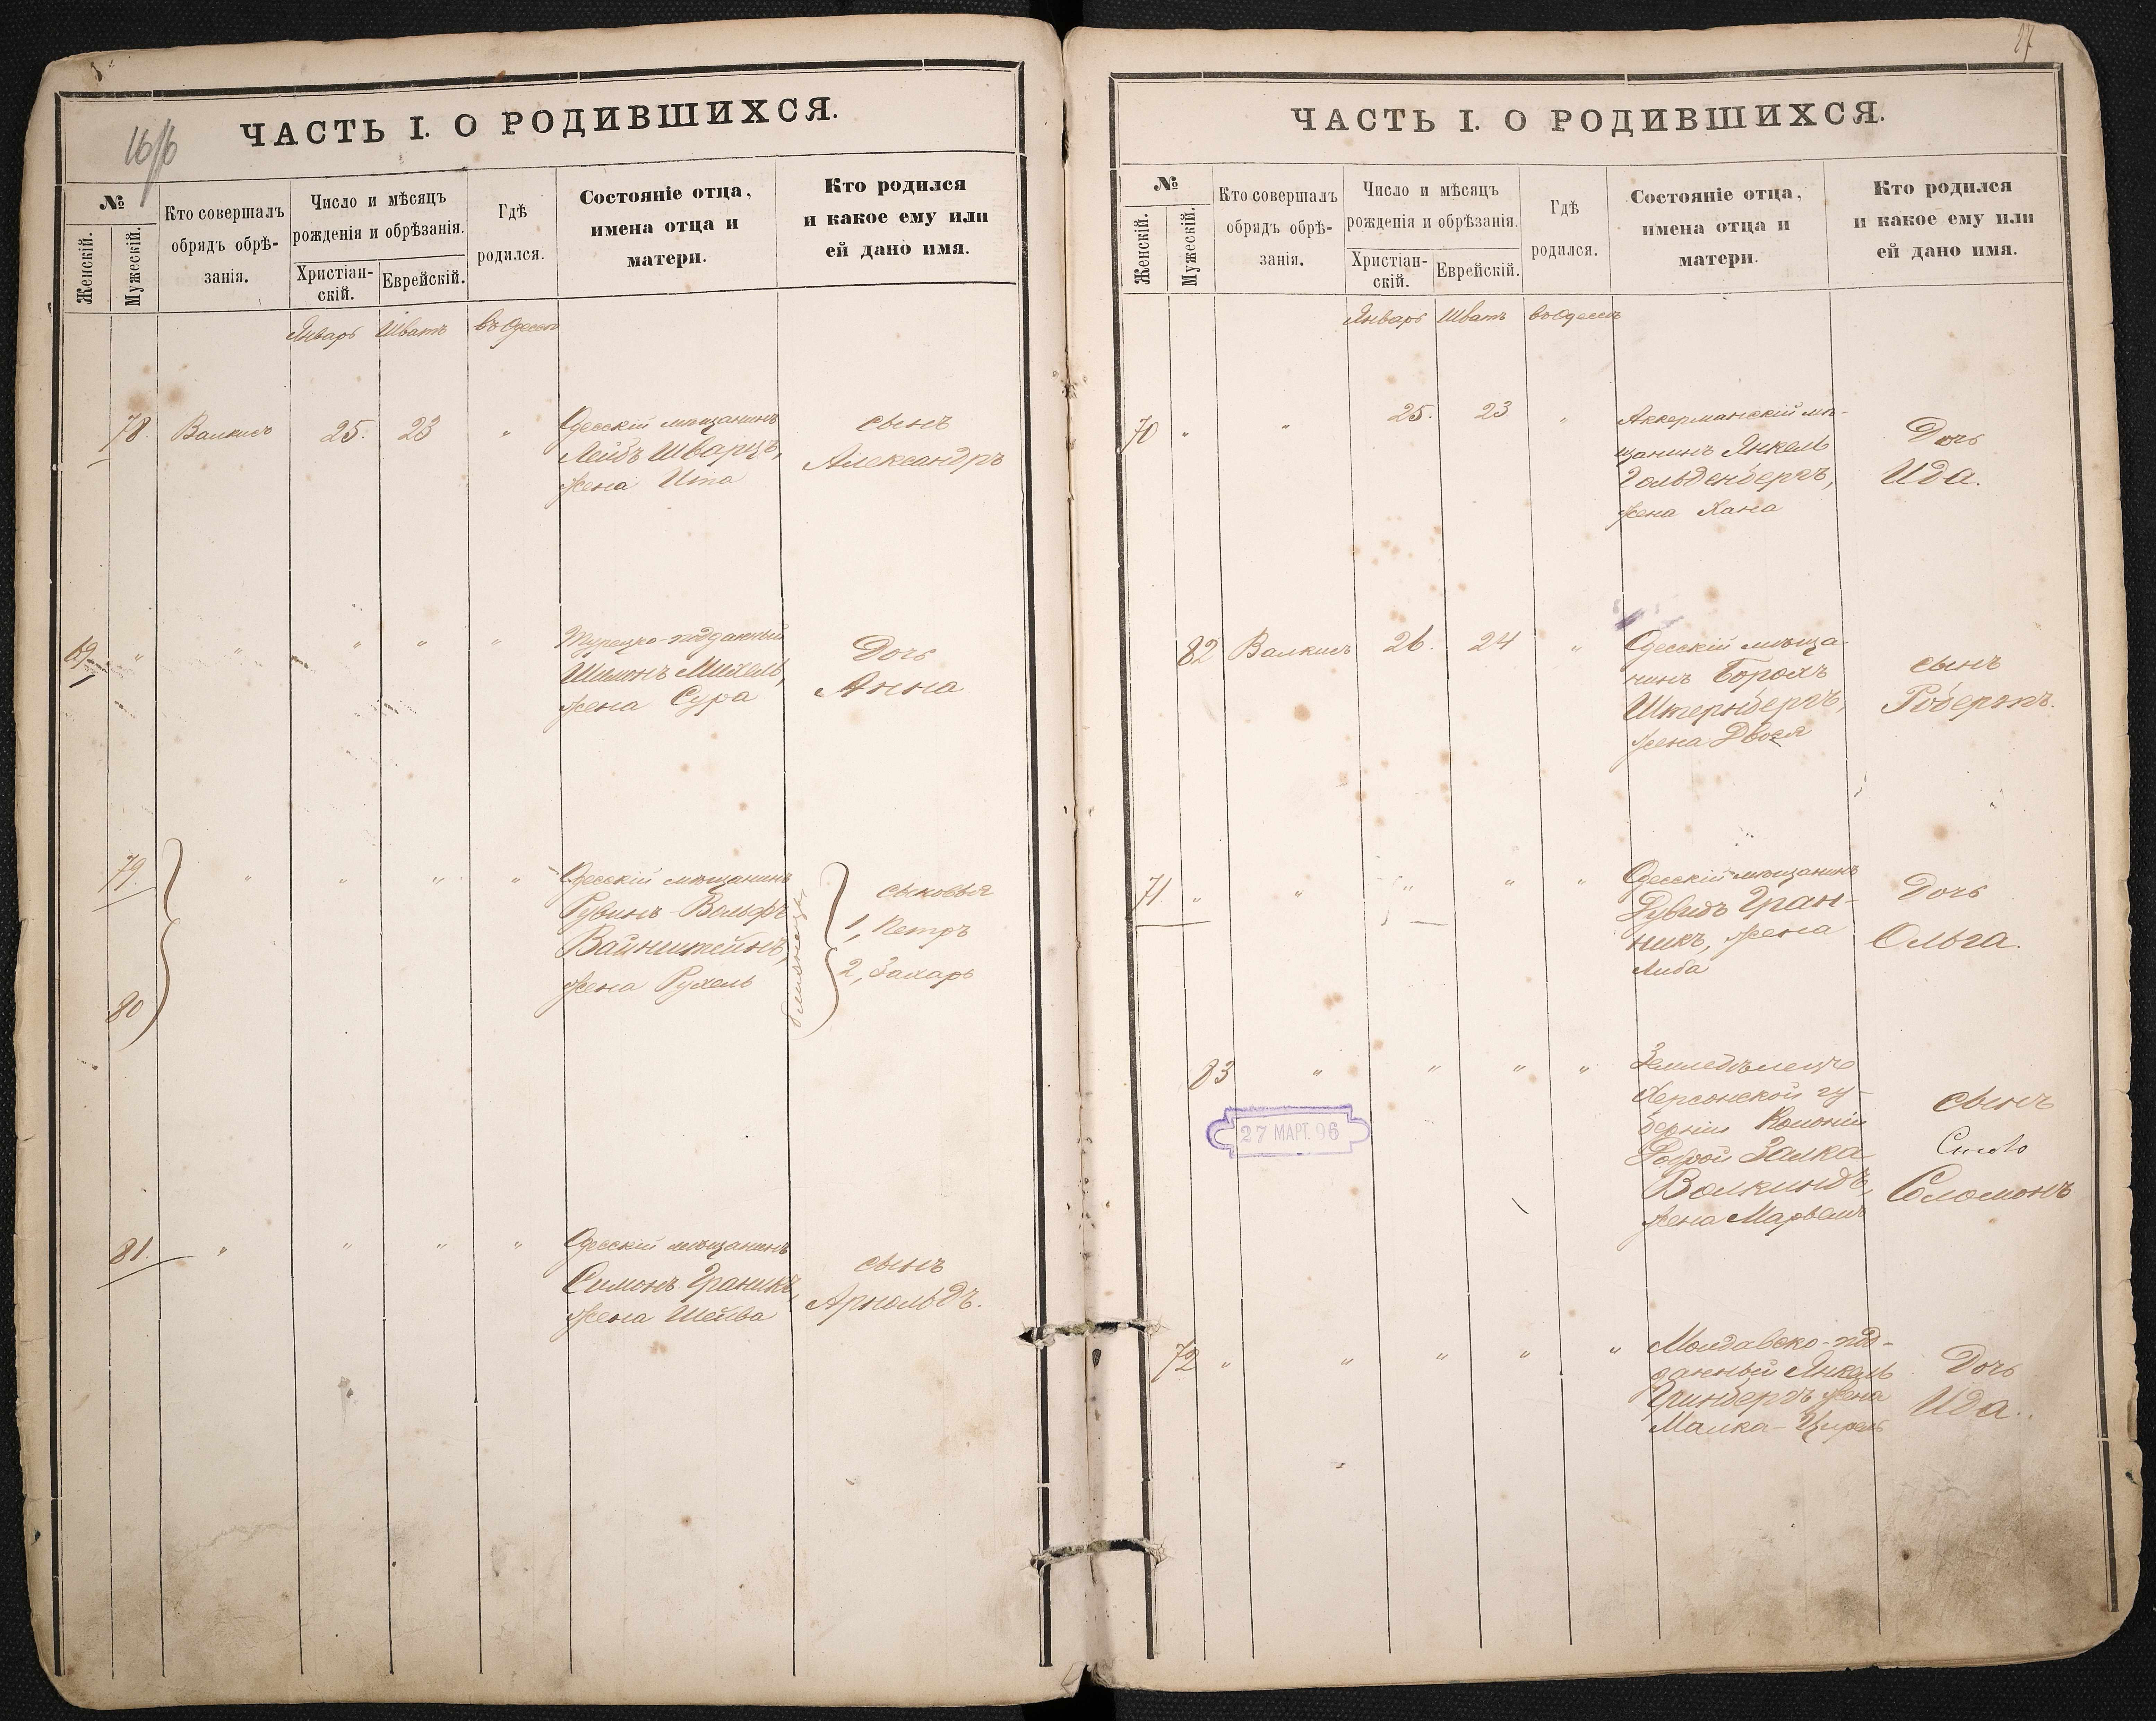 16/16
ЧАСТЬ I. О РОДИВШИХСЯ.
№
Женскій.
Мужескій.
Кто совершалъ
обрядъ обрѣ-
занія.
Число и мѣсяцъ
рожденія и обрѣзанія.
Христіан-
скій.
Еврейскій.
Гдѣ
родился.
Состояніе отца,
имена отца и
матери.
Кто родился
и какое ему или
ей дано имя.
Январь Шватъ въ Одессѣ
78. Валкисъ 25. 23 "
Одесскій мѣщанинъ
Лейбъ Шварцъ,
жена Ита
сынъ
Александръ
69 " " " " "
Турецко-подданный
Шимонъ Михель,
жена Сура
Дочь
Анна
79.
80
" " " "
Одесскій мѣщанинъ
Рувинъ-Вольфъ
Вайнштейнъ,
жена Рухель
близнецы
сыновья
1, Петръ
2, Захаръ
81. " " " "
Одесскій мѣщанинъ
Симонъ Граникъ,
жена Шейва
сынъ
Арнольдъ.
27
ЧАСТЬ I. О РОДИВШИХСЯ.
№
Женскій.
Мужескій.
Кто совершалъ
обрядъ обрѣ-
занія.
Число и мѣсяцъ
рожденія и обрѣзанія.
Христіан-
скій.
Еврейскій.
Гдѣ
родился.
Состояніе отца,
имена отца и
матери.
Кто родился
и какое ему или
ей дано имя.
Январь Шватъ въ Одессѣ
70 " " 25. 23 "
Аккерманскій мѣ-
щанинъ Янкель
Гольденбергъ,
жена Хана
Дочь
Ида.
82 Валкисъ 26. 24 "
Одесскій мѣща-
нинъ Борохъ
Штернбергъ,
жена Двося
сынъ
Робертъ.
71 " " " " "
Одесскій мѣщанинъ
Дувидъ Гран-
никъ, жена
Либа
Дочь
Ольга.
83 " " " "
27 МАРТ. 96
Земледѣлецъ
Херсонской гу-
берніи Колоніи
Доброй Залка
Волкиндъ,
жена Марьемъ
сынъ
Соломонъ
72 " " " " "
Молдавско-под-
данный Янкель
Гринбергъ жена
Малка-Цирель
Дочь
Ида.